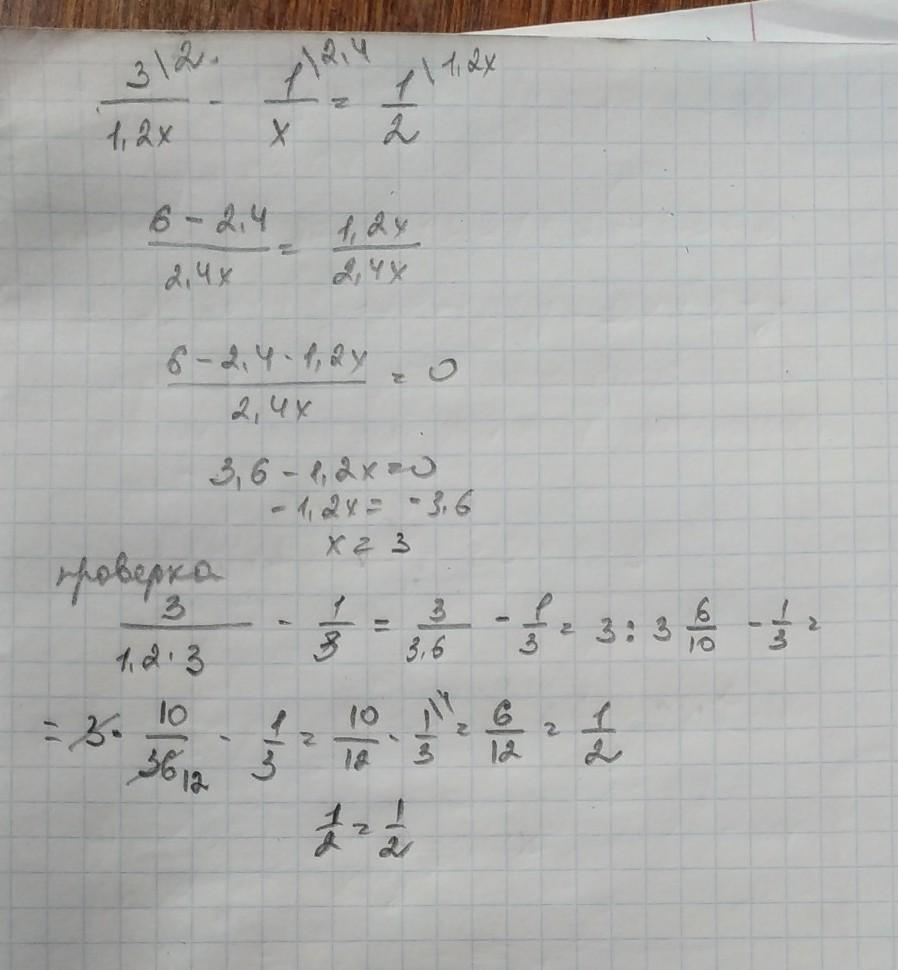 3\2 / 1,2x - 1\2,4 / x = 1\1,2x / 2
6 - 2,4 / 2,4x = 1,2x / 2,4x
6 - 2,4 - 1,2x / 2,4x = 0
3,6 - 1,2x = 0
- 1,2x = - 3,6
x = 3
проверка
3 / 1,2·3 - 1/3 = 3 / 3,6 - 1/3 = 3 : 3 6/10 - 1/3 =
= 3 · 10 / 36 12 - 1/3 = 10/12 - 1\4 / 3 = 6/12 = 1/2
1/2 = 1/2